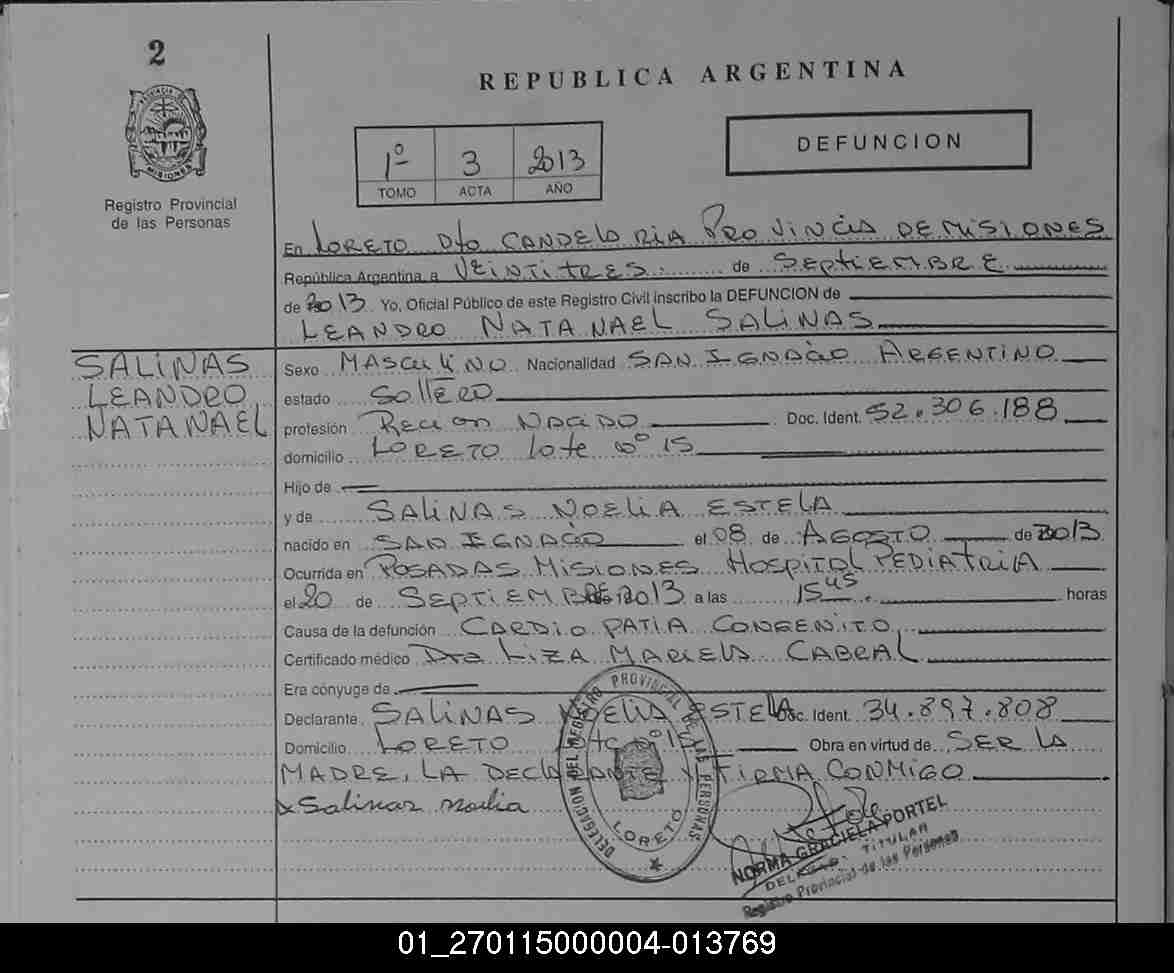 2
REPUBLICA ARGENTINA
PROVINCIA DE
MISIONES
Registro Provincial
de las Personas
1º 3 2013
TOMO ACTA AÑO
DEFUNCION
En LORETO Dto CANDELARIA PROVINCIA DE MISIONES
República Argentina a VEINTITRES de SEPTIEMBRE
de 2013 Yo, Oficial Público de este Registro Civil inscribo la DEFUNCION de
LEANDRO NATANAEL SALINAS
SALINAS
LEANDRO
NATANAEL
Sexo MASCULINO Nacionalidad SAN IGNACIO ARGENTINO
estado SOLTERO
profesión RECIEN NACIDO Doc. Ident. 52.306.188
domicilio LORETO lote nº 15
Hijo de
y de SALINAS NOELIA ESTELA
nacido en SAN IGNACIO el 08 de AGOSTO de 2013
Ocurrida en POSADAS MISIONES HOSPITAL PEDIATRIA
el 20 de SEPTIEMBRE 2013 a las 15 45 horas
Causa de la defunción CARDIOPATIA CONGENITO
Certificado médico Dra LIZA MARIELA CABRAL
Era cónyuge de
Declarante SALINAS NOELIA ESTELA Doc. Ident. 34.897.808
Domicilio LORETO Obra en virtud de SER LA
MADRE, LA DECLARANTE Y FIRMA CONMIGO
x Salinas noelia
DELEGACION DEL REGISTRO PROVINCIAL DE LAS PERSONAS
LORETO
NORMA GRACIELA PORTEL
TITULAR
Registro Provincial de las Personas
01_270115000004-013769